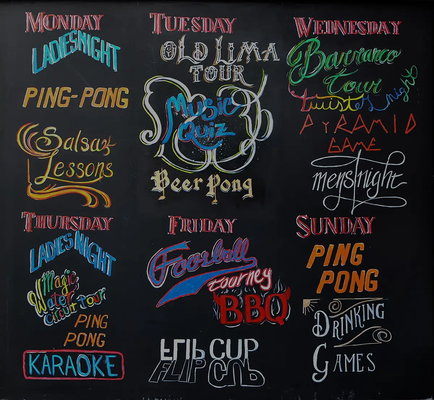 MONDAY
LADIES NIGHT
PING-PONG
Salsa
Lessons
TUESDAY
OLD LIMA
TOUR
Music
Quiz
Beer Pong
WEDNESDAY
Barranco
Tour
twister night
PYRAMID
GAME
mens night
THURSDAY
LADIES NIGHT
Magic
Water
Circuit Tour
PING
PONG
KARAOKE
FRIDAY
Foosball
tourney
BBQ
FLIP CUP
FLIP CUP
SUNDAY
PING
PONG
DRINKING
GAMES